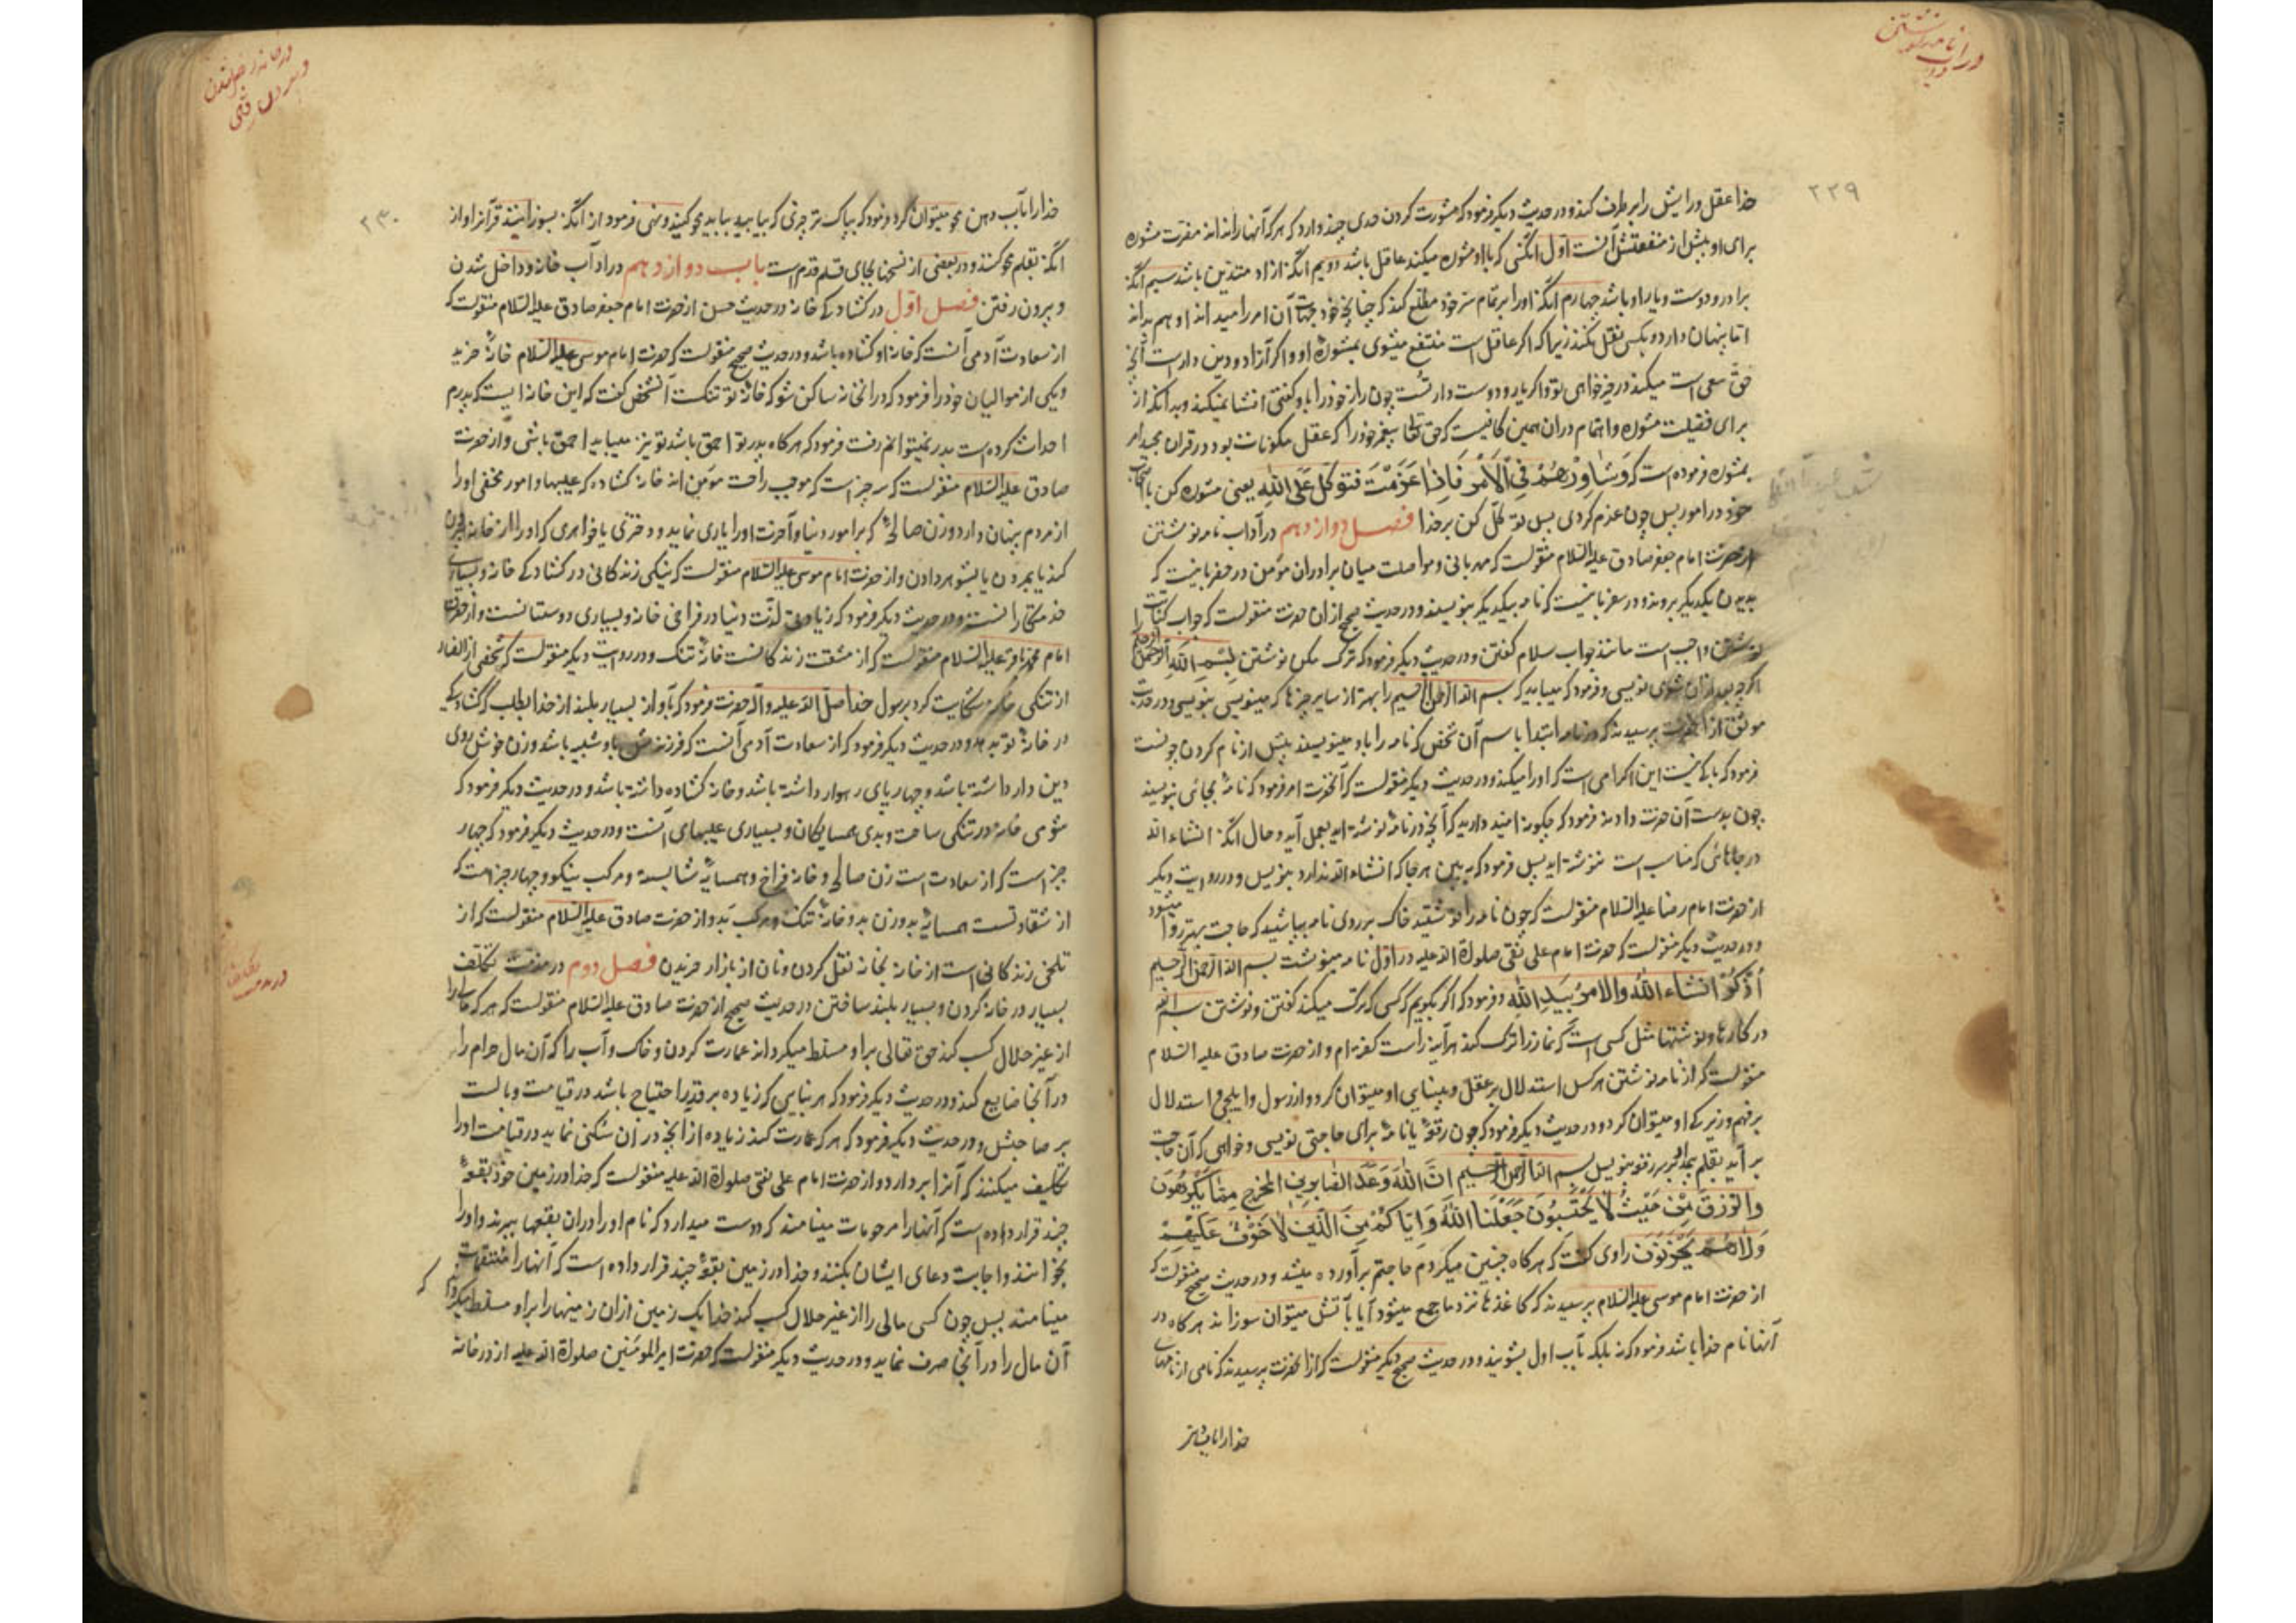 در آداب نامه نوشتن
۲۲۹
خدا عقل و رایش را برطرف کند و در حدیث دیگر فرمود که مشورت کردن حدی چند دارد که هر که آنها را نداند مضرت مشوره
برای او بیش از منفعتش آنست اول آنکسی که با او مشوره میکند عاقل باشد دویم آنکه آزاد و متدین باشد سیم آنکه
برادر و دوست و یار او باشد چهارم آنکه او را بر تمام سر خود مطلع کند که چنانچه خود جهت آن امر را میداند او هم بداند
اما پنهان دارد و بکسی نقل نکند زیرا که اگر عاقل است منتفع میشوی بمشورۀ او و اگر آزاد و دین دار است آنچه
حق سعی است میکند در خیرخواهی تو و اگر یار و دوست دار تست چون راز خود را باو گفتی افشا نمیکند و بدانکه از
برای فضیلت مشوره و اهتمام در ان همین کافیست که حق تعالی پیغمر خود را که عقل مکونات بود در قران مجید امر
بمشوره فرموده است که وَشَاوِرْهُمْ فِي الْأَمْرِ فَإِذَا عَزَمْتَ فَتَوَكَّلْ عَلَى اللَّهِ یعنی مشوره کن با اصحاب
خود در امور پس چون عزم کردی پس توکل کن بر خدا فصل دوازدهم در آداب نامه نوشتن
از حضرت امام جعفر صادق علیه السلام منقولست که مهربانی و مواصلت میان برادران مؤمن در حضر باینست که
بدیدن یکدیگر بروند و در سفر باینست که نامه بیکدیگر بنویسند و در حدیث صحیح از ان حضرت منقولست که جواب کتابت را
نوشتن واجب است مانند جواب سلام گفتن و در حدیث دیگر فرمود که ترک مکن نوشتن بسم الله الرحمن الرحیم
اگرچه بعد از ان شعری نویسی و فرمود که میباید که بسم الله الرحمن الرحیم را بهتر از سایر چیزها که مینویسی بنویسی و در حدیث
موثق از انحضرت پرسیدند که در نامه ابتدا باسم آن شخص که نامه را باو مینویسند پیش از نام کردن چونست
فرمود که باکی نیست این اکرامی است که او را میکند و در حدیث دیگر منقولست که آنحضرت امر فرمود که نامۀ بجائی بنویسند
چون بدست آن حضرت دادند فرمود که چگونه امید دارید که آنچه در نامه نوشته اید بعمل آید و حال آنکه انشاء الله
در جاهائی که مناسب است ننوشته اید پس فرمود که ببین هر جا که انشاء الله ندارد بنویس و در روایت دیگر
از حضرت امام رضا علیه السلام منقولست که چون نامه را نوشتید خاک بر روی نامه بپاشید که حاجت بهتر روا میشود
و در حدیث دیگر منقولست که حضرت امام علی نقی صلوة الله علیه در اول نامه مینوشت بسم الله الرحمن الرحیم
أذكر انشاء الله والامر بيد الله و فرمود که اگر بگویم که کسی که ترک میکند گفتن و نوشتن بسم الله
در کارها و نوشتها مثل کسی است که نماز را ترک کند هرآینه راست گفته ام و از حضرت صادق علیه السلام
منقولست که از نامه نوشتن هر کس استدلال بر عقل و بینایی او میتوان کرد و از رسول و ایلچی او استدلال
بر فهم و زیرکی او میتوان کرد و در حدیث دیگر فرمود که چون رقعۀ یا نامۀ برای حاجتی نویسی و خواهی که آن حاجت
بر آید بقلم بر سر رقعه بنویس بسم الله الرحمن الرحیم ان الله وعد الصابرین المخرج مما یکرهون
والرزق من حیث لا یحتسبون جعلنا الله وایاکم من الذین لا خوف علیهم
ولا هم یحزنون راوی گفت که هر گاه چنین میکردم حاجتم برآورده میشد و در حدیث صحیح منقولست که
از حضرت امام موسی علیه السلام پرسیدند که کاغذها نزد ما جمع میشود آیا بآتش میتوان سوزاند هر گاه در
آنها نام خدا باشد فرمود که نه بلکه بآب اول بشویند و در حدیث صحیح دیگر منقولست که از انحضرت پرسیدند که نامی از نامهای
۲۳۰
خدا را بآب دهن محو میتوان کرد فرمود که بپاک تر چیزی که بیابید محو کنید و نهی فرمود از آنکه بسوزانند قرآنرا و از
آنکه بقلم محو کنند و در بعضی از نسخها بجای قلم قدم است باب دوازدهم در آداب خانه و داخل شدن
و بیرون رفتن فصل اول در گشادگی خانه در حدیث حسن از حضرت امام جعفر صادق علیه السلام منقولست که
از سعادت آدمی آنست که خانۀ او گشاده باشد و در حدیث صحیح منقولست که حضرت امام موسی علیه السلام خانۀ خرید
و یکی از موالیان خود را فرمود که در انخانه ساکن شو که خانۀ تو تنگست آنشخص گفت که این خانه ایست که پدرم
احداث کرده است بدر نمیتوانم رفت فرمود که هر گاه پدر تو احمق باشد تو نیز میباید احمق باشی و از حضرت
صادق علیه السلام منقولست که سه چیز است که موجب راحت مؤمن اند خانۀ گشاده که عیبها و امور مخفی او را
از مردم پنهان دارد و زن صالحۀ که بر امور دنیا و آخرت او را یاری نماید و دختری یا خواهری که او را از خانه بیرون
کند یا بمردن یا بشوهر دادن و از حضرت امام موسی علیه السلام منقولست که نیکی زندگانی در گشادگی خانه و بسیاری
خدمتکارانست و در حدیث دیگر فرمود که زیادتی لذت دنیا در فراخی خانه و بسیاری دوستانست و از حضرت
امام محمد باقر علیه السلام منقولست که از مشقت زندگانست خانۀ تنگ و در روایت دیگر منقولست که شخصی از انصار
از تنگی خانه شکایت کرد برسول خدا صلی الله علیه و آله حضرت فرمود که بآواز بسیار بلند از خدا بطلب که گشادگی
در خانۀ تو بدهد و در حدیث دیگر فرمود که از سعادت آدمی آنست که فرزندش باو شبیه باشد و زن خوش روی
دین دار داشته باشد و چهارپای رهوار داشته باشد و خانۀ گشاده داشته باشد و در حدیث دیگر فرمود که
شومی خانه در تنگی ساحت و بدی همسایگان و بسیاری عیبهای آنست و در حدیث دیگر فرمود که چهار
چیز است که از سعادت است زن صالح و خانۀ فراخ و همسایۀ شایسته و مرکب نیکو و چهار چیز است که
از شقاوتست همسایۀ بد و زن بد و خانۀ تنگ و مرکب بد و از حضرت صادق علیه السلام منقولست که از
تلخی زندگانی است از خانه بخانه نقل کردن و نان از بازار خریدن فصل دوم در مذمت تکلف
بسیار در خانه کردن و بسیار بلند ساختن در حدیث صحیح از حضرت صادق علیه السلام منقولست که هر که مالی را
از غیر حلال کسب کند حق تعالی بر او مسلط میگرداند عمارت کردن و خاک و آب را که آن مال حرام را
در آنجا ضایع کند و در حدیث دیگر فرمود که هر بنایی که زیاده بر قدر احتیاج باشد در قیامت وبالست
بر صاحبش و در حدیث دیگر فرمود که هر که عمارت کند زیاده از آنچه در ان سکنی نماید در قیامت او را
تکلیف میکنند که آنرا بردارد و از حضرت امام علی نقی صلوة الله علیه منقولست که خدا در زمین خود بقعۀ
چند قرار داده است که آنها را مرحومات مینامند که دوست میدارد که نام او را در ان بقعها ببرند و او را
بخوانند و اجابت دعای ایشان بکنند و خدا در زمین بقعۀ چند قرار داده است که آنها را منتقمات
مینامند پس چون کسی مالی را از غیر حلال کسب کند خدا یک زمین از ان زمینها را بر او مسلط میگرداند که
آن مال را در آنجا صرف نماید و در حدیث دیگر منقولست که حضرت امیر المؤمنین صلوة الله علیه از در خانۀ